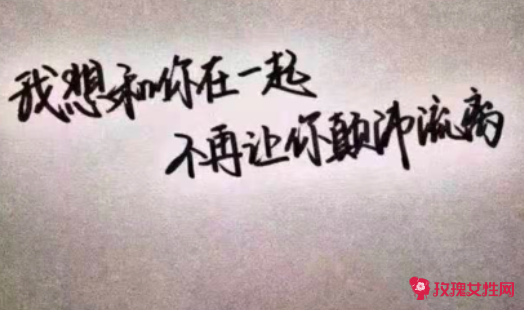 我想和你在一起
不再让你颠沛流离
玫瑰女性网